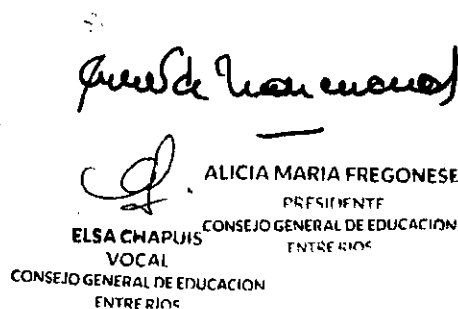 ALICIA MARIA FREGONESE
PRESIDENTE
CONSEJO GENERAL DE EDUCACION
ENTRE RIOS
ELSA CHAPUIS
VOCAL
CONSEJO GENERAL DE EDUCACION
ENTRE RIOS